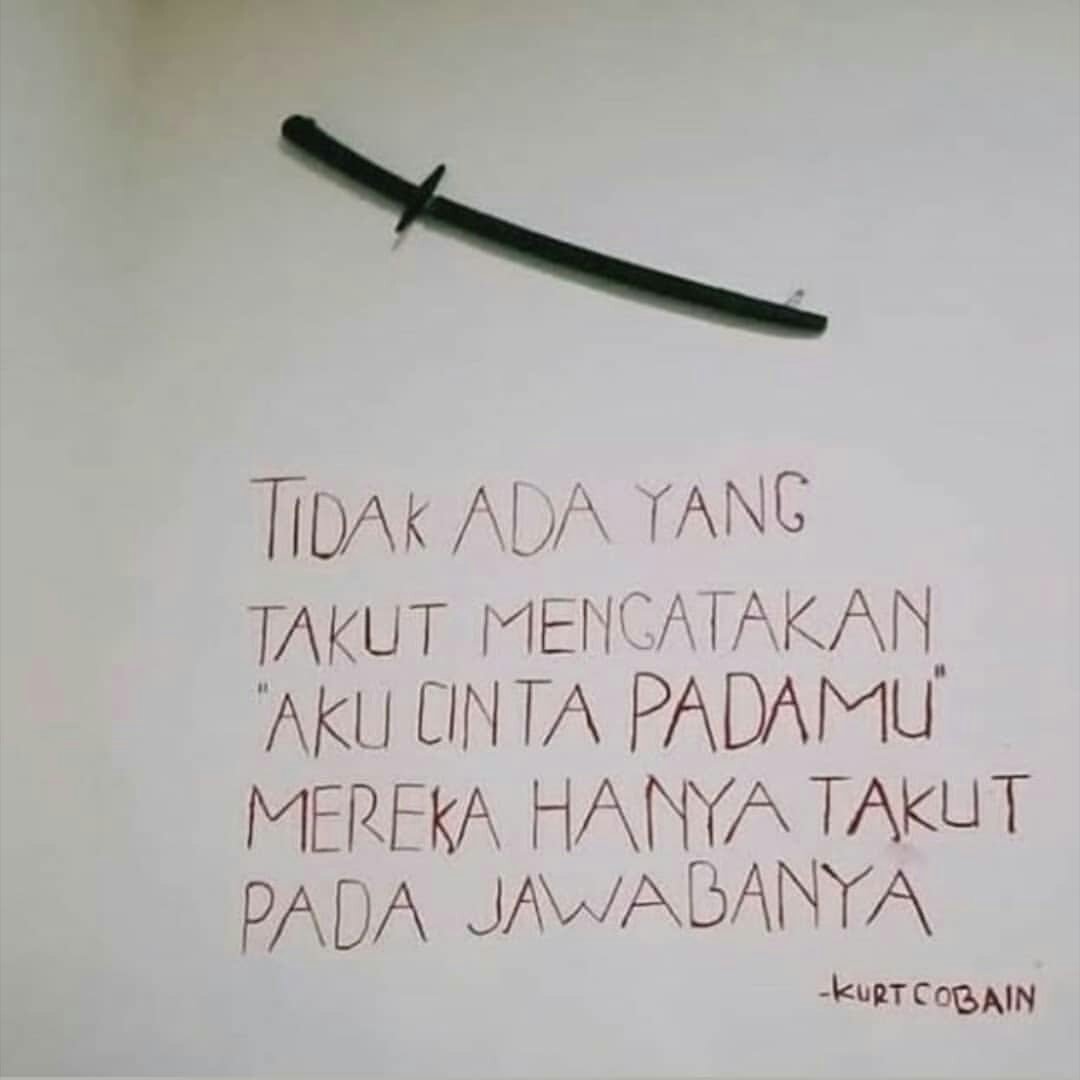 TIDAK ADA YANG
TAKUT MENGATAKAN
"AKU CINTA PADAMU"
MEREKA HANYA TAKUT
PADA JAWABANYA
-KURT COBAIN